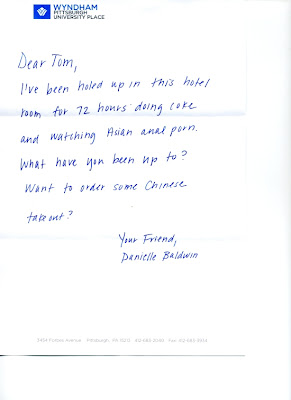 WYNDHAM
PITTSBURGH
UNIVERSITY PLACE
Dear Tom,
I've been holed up in this hotel
room for 72 hours doing coke
and watching Asian anal porn.
What have you been up to?
Want to order some Chinese
takeout?
Your Friend,
Danielle Baldwin
Pittsburgh, PA